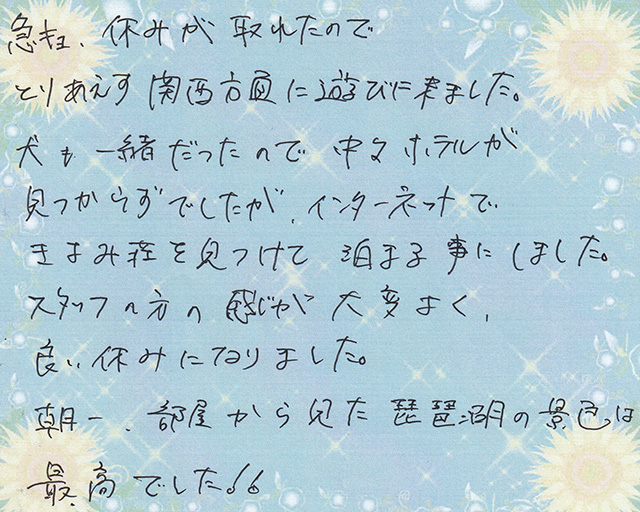 急拠、休みが取れたので
とりあえず関西方面に遊びに来ました。
犬も一緒だったので中々ホテルが
見つからずでしたが、インターネットで
きよみ荘を見つけて泊まる事にしました。
スタッフの方の感じが大変よく、
良い休みになりました。
朝一、部屋から見た琵琶湖の景色は
最高でした!!